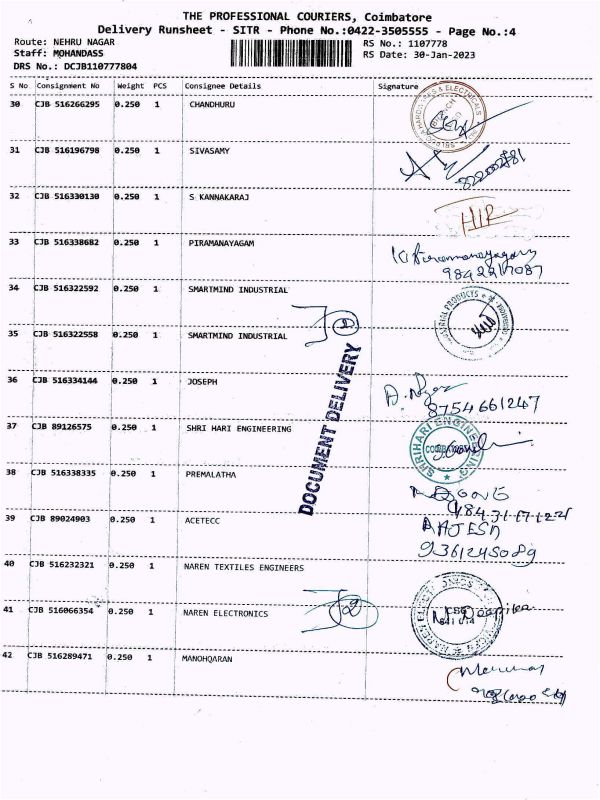 THE PROFESSIONAL COURIERS, Coimbatore
Delivery Runsheet - SITR - Phone No.:0422-3505555 - Page No.:4
Route: NEHRU NAGAR RS No.: 1107778
Staff: MOHANDASS RS Date: 30-Jan-2023
DRS No.: DCJB110777804
S No Consignment No Weight PCS Consignee Details Signature
30 CJB 516266295 0.250 1 CHANDHURU
31 CJB 516196798 0.250 1 SIVASAMY
32 CJB 516330130 0.250 1 S KANNAKARAJ
33 CJB 516338682 0.250 1 PIRAMANAYAGAM
9842217087
34 CJB 516322592 0.250 1 SMARTMIND INDUSTRIAL
35 CJB 516322558 0.250 1 SMARTMIND INDUSTRIAL
36 CJB 516334144 0.250 1 JOSEPH
8754661247
37 CJB 89126575 0.250 1 SHRI HARI ENGINEERING
SHRIHARI ENGINEERING
DOCUMENT DELIVERY
38 CJB 516338335 0.250 1 PREMALATHA
39 CJB 89024903 0.250 1 ACETECC
9361245089
40 CJB 516232321 0.250 1 NAREN TEXTILES ENGINEERS
41 CJB 516066354 0.250 1 NAREN ELECTRONICS
42 CJB 516289471 0.250 1 MANOHQARAN